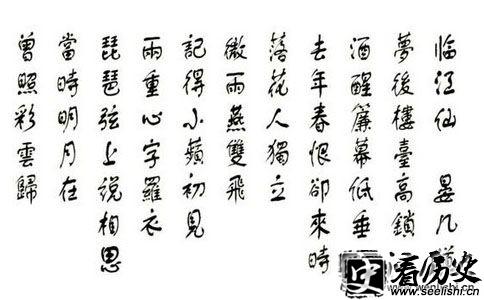 临江仙 晏几道
夢後樓臺高鎖
酒醒簾幕低垂
去年春恨卻來時
落花人獨立
微雨燕雙飛
記得小蘋初見
兩重心字羅衣
琵琶弦上说相思
當時明月在
曾照彩雲歸
史 看历史
www.seelishi.cn